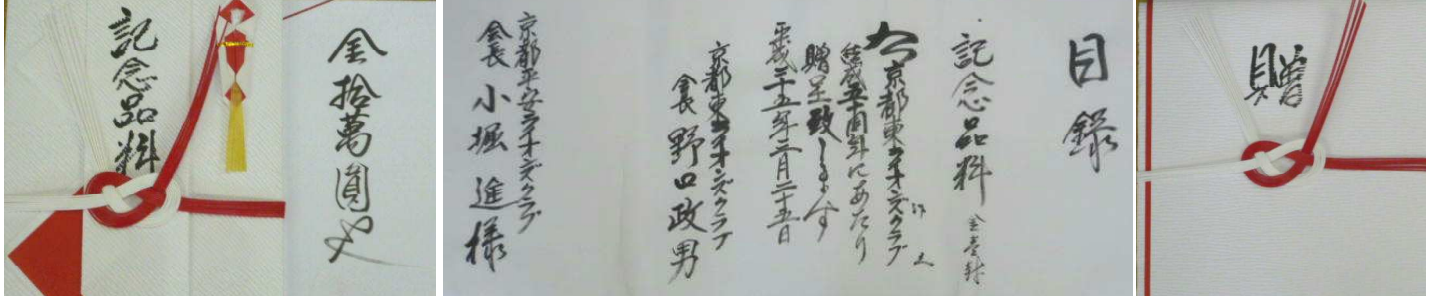 記念品料
金拾萬圓也
目録
記念品料 金壱封
右京都東ライオンズクラブ
結成五十周年にあたり
贈呈致します
平成二十五年二月二十五日
京都東ライオンズクラブ
会長 野口政男
京都平安ライオンズクラブ
会長 小堀進様
贈